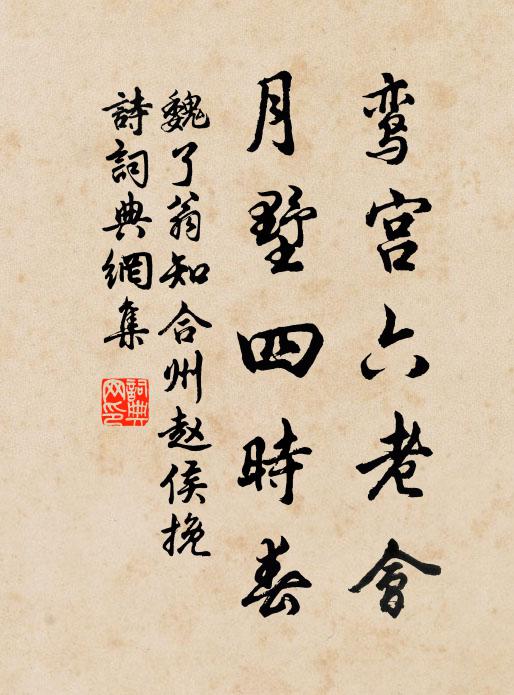 鸾宫六老會
月墅四時春
魏了翁知合州赵侯挽
詩詞典網集
詞典網印